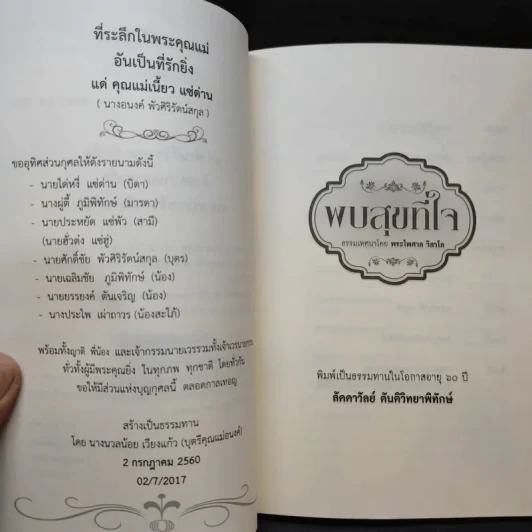 ที่ระลึกในพระคุณแม่
อันเป็นที่รักยิ่ง
แด่ คุณแม่เนี้ยว แซ่ด่าน
( นางอนงค์ พัวศิริรัตน์สกุล )
ขออุทิศส่วนกุศลให้ดังรายนามดังนี้
- นายไต่หงี่ แซ่ด่าน (บิดา)
- นางผู่ตี้ ภูมิพิทักษ์ (มารดา)
- นายประหยัด แซ่พัว (สามี)
(นายฮั่วต่ง แซ่ฮู่)
- นายศักดิ์ชัย พัวศิริรัตน์สกุล (บุตร)
- นายเฉลิมชัย ภูมิพิทักษ์ (น้อง)
- นายยรรยงค์ ตันเจริญ (น้อง)
- นางประไพ เผ่าถาวร (น้องสะใภ้)
พร้อมทั้งญาติ พี่น้อง และเจ้ากรรมนายเวรรวมทั้งเจ้าเวรนายกรรม
ทั่วทั้งผู้มีพระคุณยิ่ง ในทุกภพ ทุกชาติ โดยทั่วกัน
ขอให้มีส่วนแห่งบุญกุศลนี้ ตลอดกาลเทอญ
สร้างเป็นธรรมทาน
โดย นางนวลน้อย เวียงแก้ว (บุตรีคุณแม่อนงค์)
2 กรกฎาคม 2560
02/7/2017
พบสุขที่ใจ
ธรรมเทศนาโดย พระไพศาล วิสาโล
พิมพ์เป็นธรรมทานในโอกาสอายุ ๖๐ ปี
ลัคดาวัลย์ ตันติวิทยาพิทักษ์